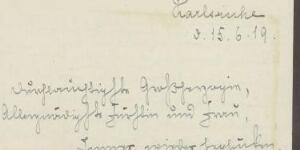 Karlsruhe
d. 15.6.19.
Durchlauchtigste Großherzogin,
Allergnädigste Fürstin und Frau,
Immer wieder